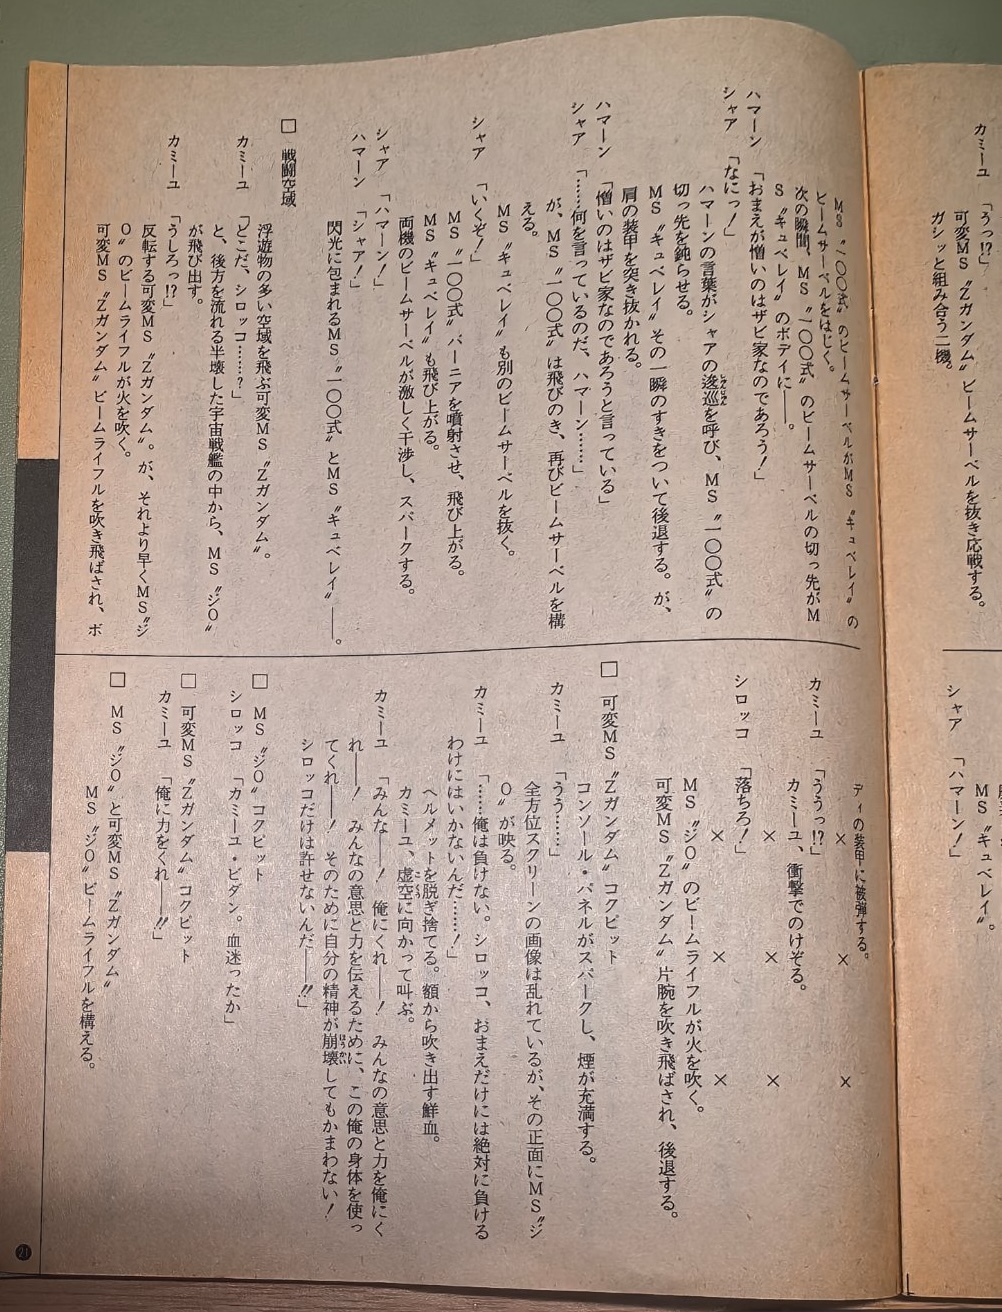 カミーユ 「うっ!?」
可変MS〝Zガンダム〟ビームサーベルを抜き応戦する。
ガシッと組み合う二機。
MS〝キュベレイ〟。
シャア 「ハマーン!」
MS〝一〇〇式〟のビームサーベルがMS〝キュベレイ〟の
ビームサーベルをはじく。
次の瞬間、MS〝一〇〇式〟のビームサーベルの切っ先がM
S〝キュベレイ〟のボディに――。
ハマーン 「おまえが憎いのはザビ家なのであろう!」
シャア 「なにっ!」
ハマーンの言葉がシャアの逡巡を呼び、MS〝一〇〇式〟の
切っ先を鈍らせる。
MS〝キュベレイ〟その一瞬のすきをついて後退する。が、
肩の装甲を突き抜かれる。
ハマーン 「憎いのはザビ家なのであろうと言っている」
シャア 「……何を言っているのだ、ハマーン……」
が、MS〝一〇〇式〟は飛びのき、再びビームサーベルを構
える。
MS〝キュベレイ〟も別のビームサーベルを抜く。
シャア 「いくぞ!」
MS〝一〇〇式〟バーニアを噴射させ、飛び上がる。
MS〝キュベレイ〟も飛び上がる。
両機のビームサーベルが激しく干渉し、スパークする。
シャア 「ハマーン!」
ハマーン 「シャア!」
閃光に包まれるMS〝一〇〇式〟とMS〝キュベレイ〟――。
□ 戦闘空域
浮遊物の多い空域を飛ぶ可変MS〝Zガンダム〟。
カミーユ 「どこだ、シロッコ……?」
と、後方を流れる半壊した宇宙戦艦の中から、MS〝ジO〟
が飛び出す。
カミーユ 「うしろっ!?」
反転する可変MS〝Zガンダム〟。が、それより早くMS〝ジ
O〟のビームライフルが火を吹く。
可変MS〝Zガンダム〟ビームライフルを吹き飛ばされ、ボ
ディの装甲に被弾する。
× × ×
カミーユ 「ううっ!?」
カミーユ、衝撃でのけぞる。
× × ×
シロッコ 「落ちろ!」
× × ×
MS〝ジO〟のビームライフルが火を吹く。
可変MS〝Zガンダム〟片腕を吹き飛ばされ、後退する。
□ 可変MS〝Zガンダム〟コクピット
コンソール・パネルがスパークし、煙が充満する。
カミーユ 「うう……」
全方位スクリーンの画像は乱れているが、その正面にMS〝ジ
O〟が映る。
カミーユ 「……俺は負けない。シロッコ、おまえだけには絶対に負ける
わけにはいかないんだ……!」
ヘルメットを脱ぎ捨てる。額から吹き出す鮮血。
カミーユ、虚空に向かって叫ぶ。
カミーユ 「みんな――! 俺にくれ――! みんなの意思と力を俺にく
れ――! みんなの意思と力を伝えるために、この俺の身体を使っ
てくれ――! そのために自分の精神が崩壊してもかまわない!
シロッコだけは許せないんだ――!!」
□ MS〝ジO〟コクピット
シロッコ 「カミーユ・ビダン。血迷ったか」
□ 可変MS〝Zガンダム〟コクピット
カミーユ 「俺に力をくれ――!!」
□ MS〝ジO〟と可変MS〝Zガンダム〟
MS〝ジO〟ビームライフルを構える。
21